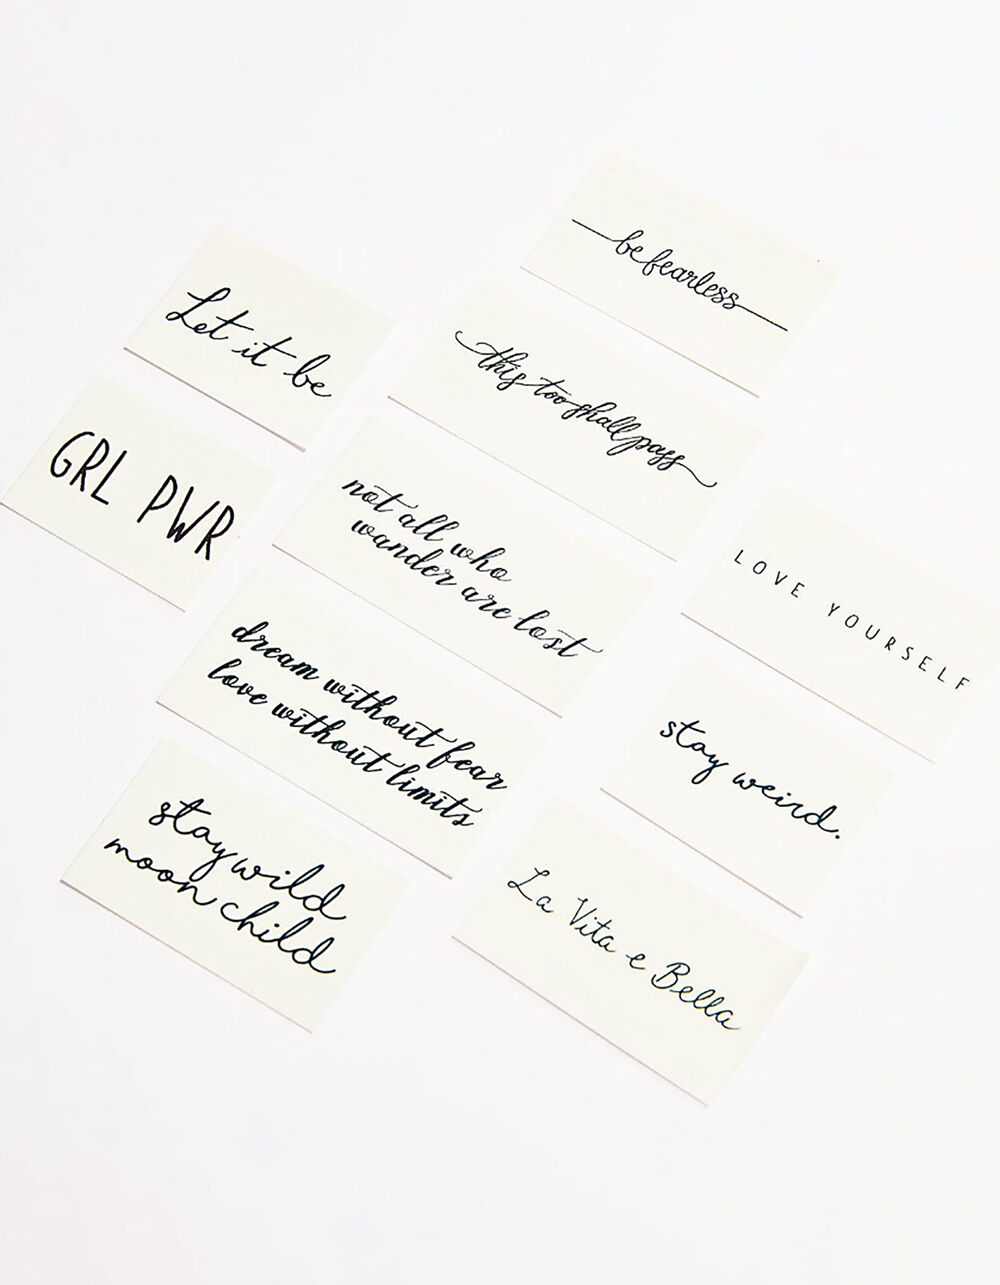 be fearless
Let it be
this too shall pass
GRL PWR
not all who
wander are lost
LOVE YOURSELF
dream without fear
love without limits
stay weird.
stay wild
moon child
La Vita e Bella